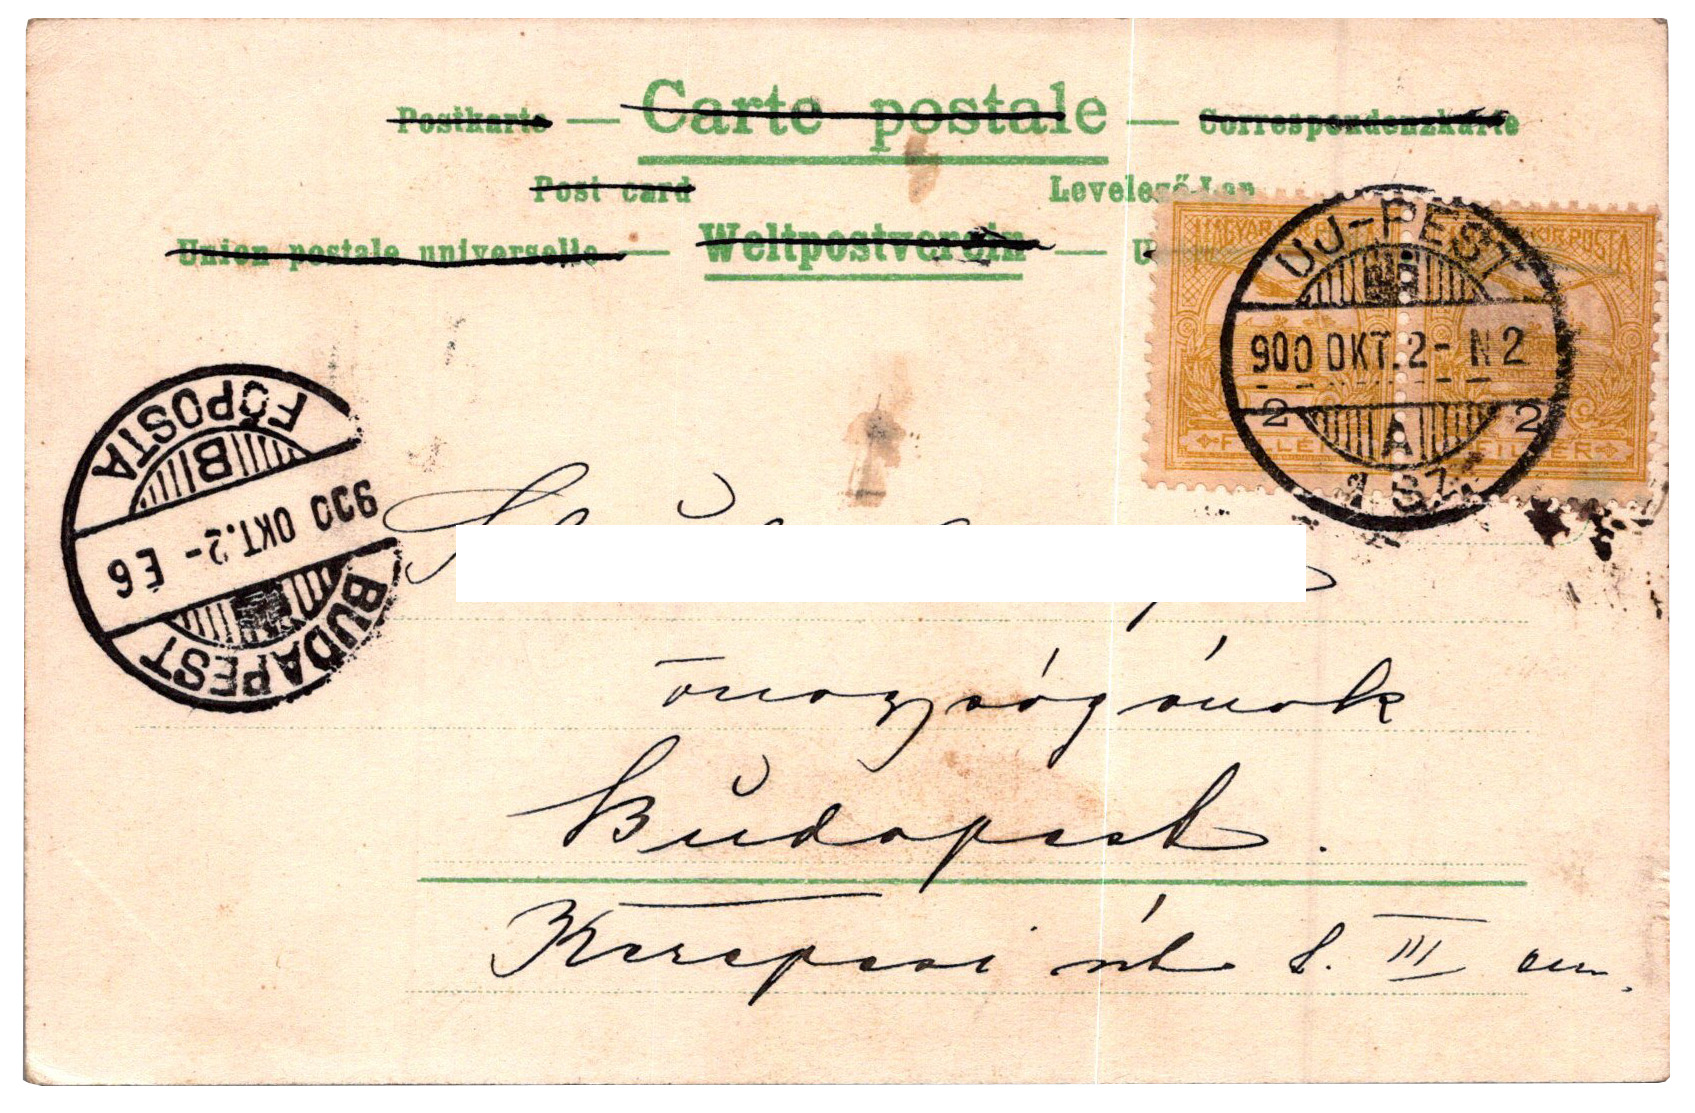 Postkarte — Carte postale — Correspondenzkarte
Post card Levelező-Lap
Union postale universelle — Weltpostverein — U
MAGYAR KIR. POSTA
2 FILLÉR 2 FILLÉR
UJ-PEST
900 OKT. 2 - N 2
A
BUDAPEST
900 OKT. 2 - E 6
BI
FŐPOSTA
őnagyságának
Budapest.
Kerepesi út 8. III em.